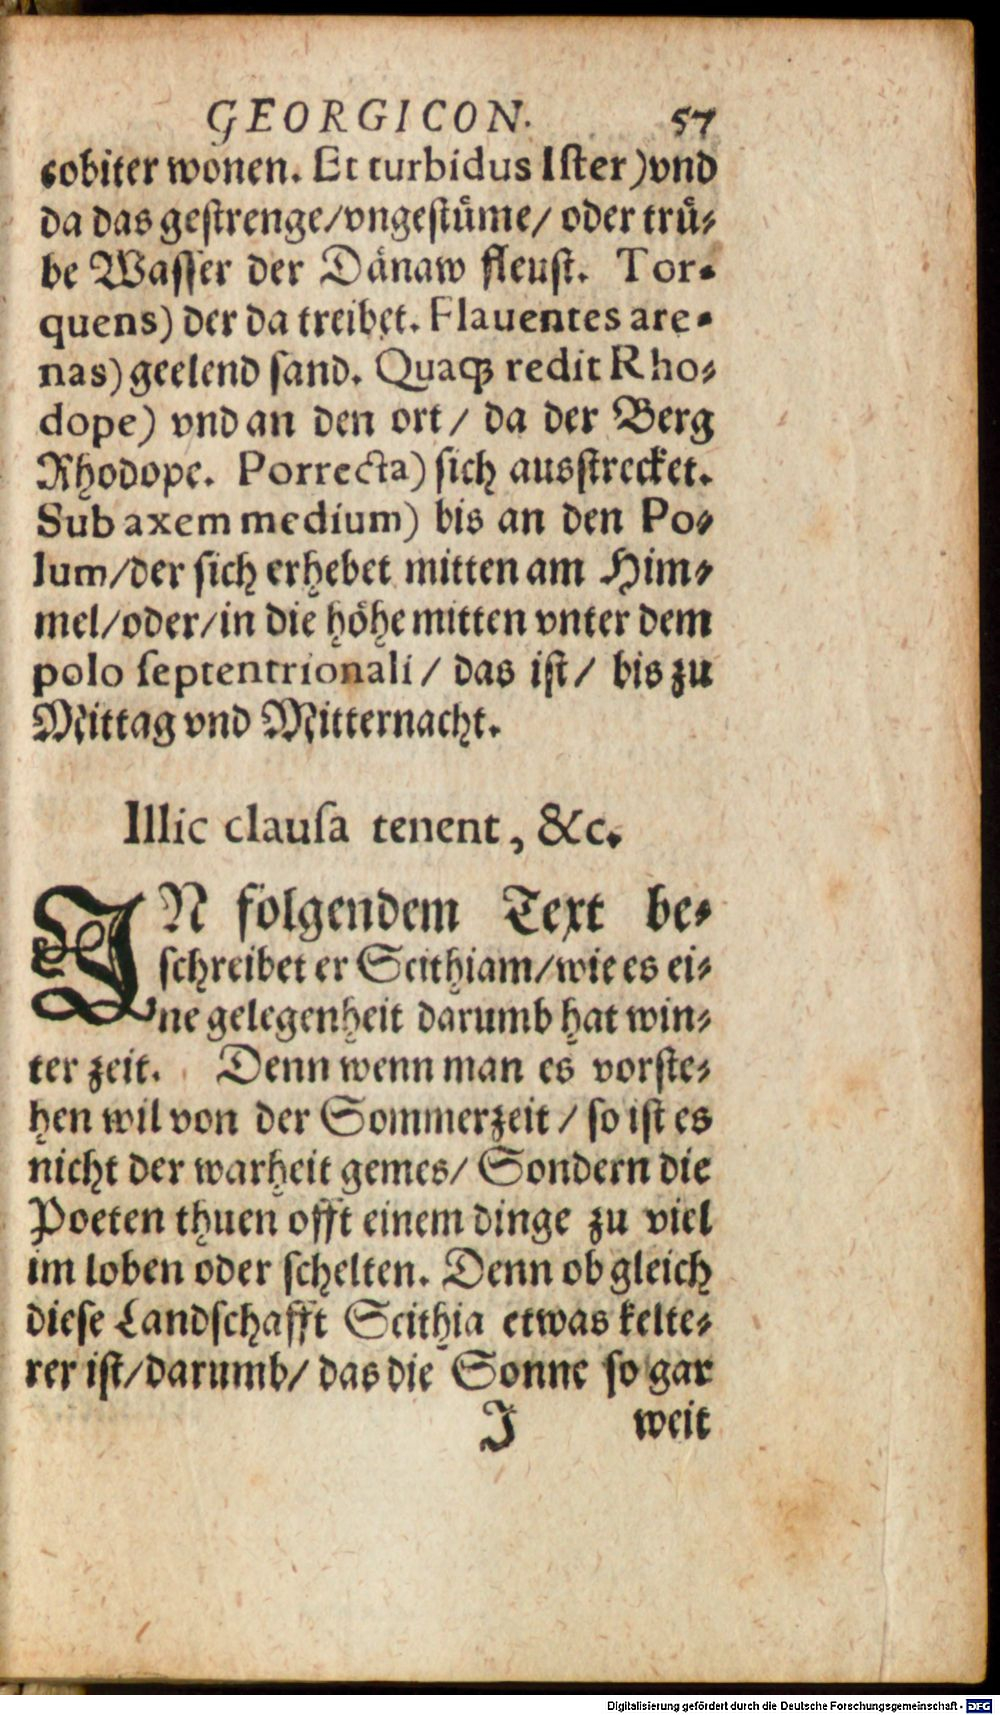 GEORGICON. 57
cobiter wonen. Et turbidus Iſter) vnd
da das geſtrenge/vngeſtuͤme/ oder truͤ⸗
be Waſſer der Daͤnaw fleuſt. Tor⸗
quens) der da treibet. Flauentes are⸗
nas) geelend ſand. Quaqꝫ redit Rho⸗
dope) vnd an den ort/ da der Berg
Rhodope. Porrecta) ſich ausſtrecket.
Sub axem medium) bis an den Po⸗
lum/der ſich erhebet mitten am Him⸗
mel/oder/in die hoͤhe mitten vnter dem
polo ſeptentrionali/ das iſt/ bis zu
Mittag vnd Mitternacht.
Illic clauſa tenent, &c.
IN folgendem Text be⸗
ſchreibet er Scithiam/wie es ei⸗
ne gelegenheit darumb hat win⸗
ter zeit. Denn wenn man es vorſte⸗
hen wil von der Sommerzeit/ ſo iſt es
nicht der warheit gemes/ Sondern die
Poeten thuen offt einem dinge zu viel
im loben oder ſchelten. Denn ob gleich
dieſe Landſchafft Scithia etwas kelte⸗
rer iſt/darumb/ das die Sonne ſo gar
J weit
Digitalisierung gefördert durch die Deutsche Forschungsgemeinschaft - DFG